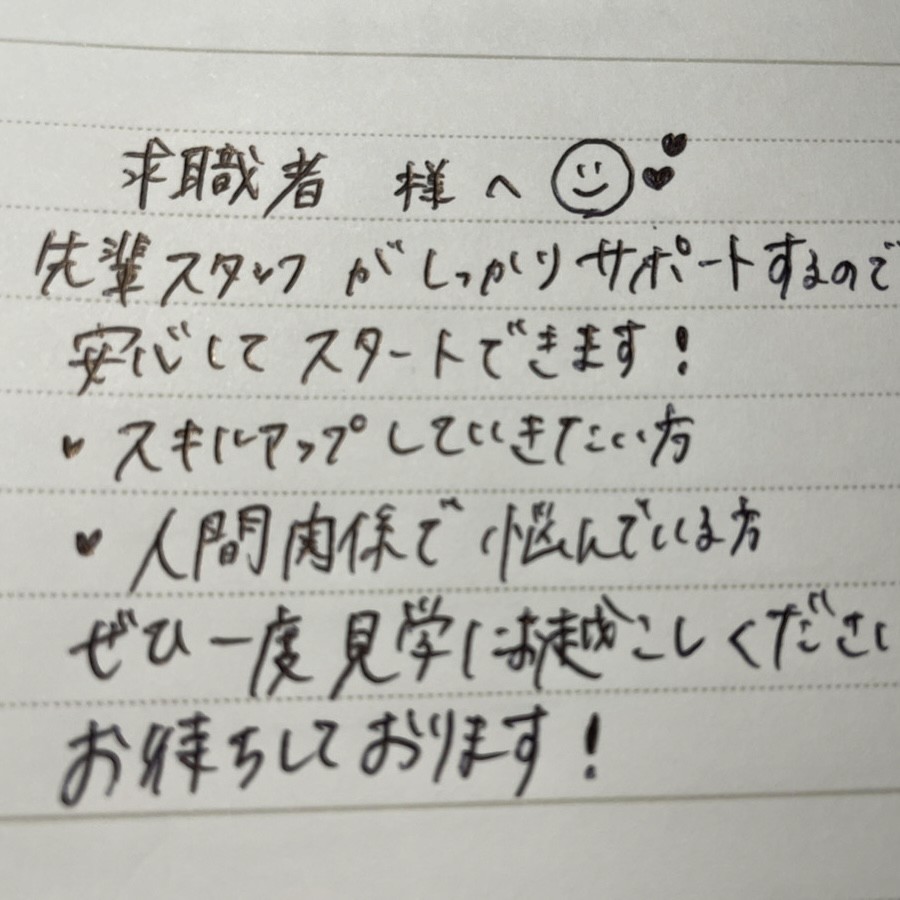 求職者 様へ
先輩スタッフがしっかりサポートするので
安心してスタートできます！
♥ スキルアップしていきたい方
♥ 人間関係で悩んでいる方
ぜひ一度見学にお越こしくださ
お待ちしております！